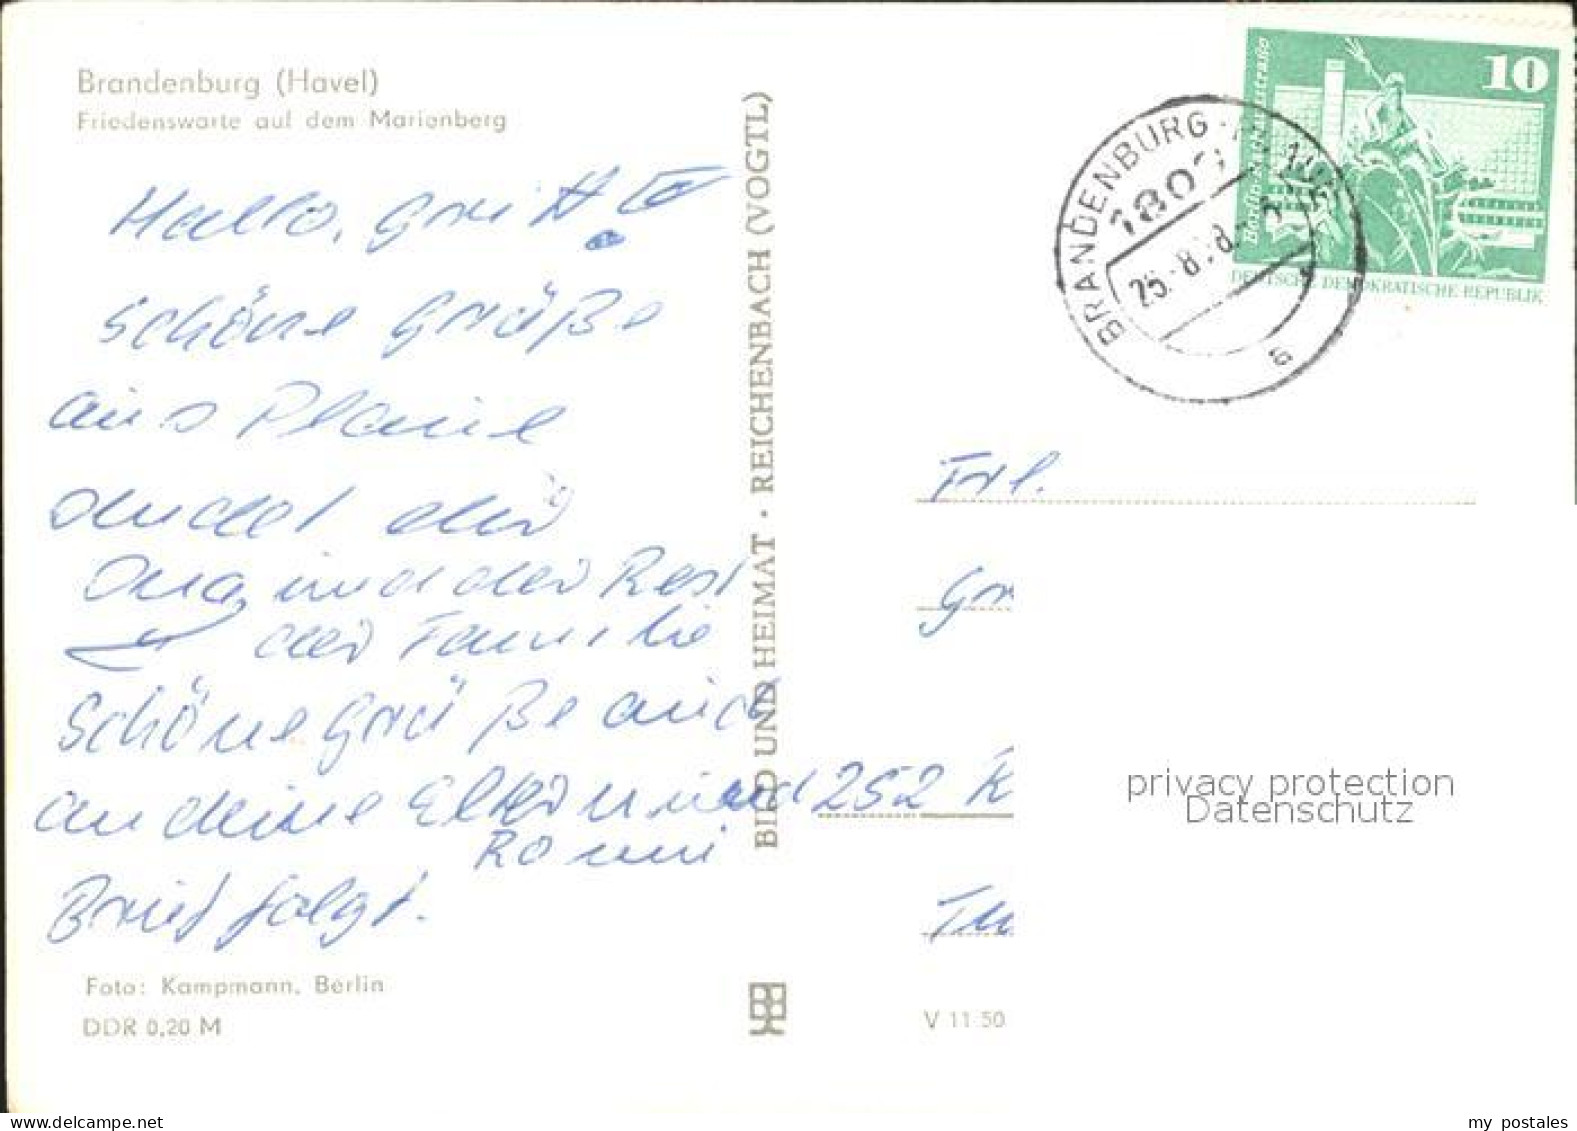 Brandenburg (Havel)
Friedenswarte auf dem Marienberg
Hallo, Gritt
schöne Grüße
aus Plaue
sendet dir
und der Rest
der Familie
Schöne Grüße auch
an deine Eltern und
Romi
Brief folgt.
Foto: Kampmann, Berlin
DDR 0,20 M
BILD UND HEIMAT · REICHENBACH (VOGTL)
V 11 50
10
DEUTSCHE DEMOKRATISCHE REPUBLIK
BRANDENBURG
180
a
Frl.
Gr
252 K
privacy protection
Datenschutz
my postales